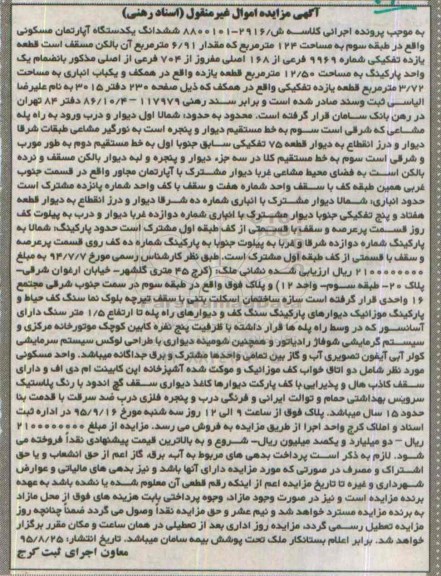 آگهی مزایده اموال غیرمنقول (اسناد رهنی)
به موجب پرونده اجرائی کلاسه ش/۲۹۱۶-۸۸۰۰۱۰۱ ششدانگ یکدستگاه آپارتمان مسکونی
واقع در طبقه سوم به مساحت ۱۲۴ مترمربع که مقدار ۶/۹۱ مترمربع آن بالکن مسقف است قطعه
یازده تفکیکی شماره ۹۹۶۹ فرعی از ۱۶۸ اصلی مفروز از ۷۰۴ فرعی از اصلی مذکور بانضمام یک
واحد پارکینگ به مساحت ۱۲/۵۰ مترمربع قطعه یازده واقع در همکف و یکباب انباری به مساحت
۳/۷۲ مترمربع قطعه یازده تفکیکی واقع در همکف که ذیل صفحه ۲۳۰ دفتر ۳۰۱۵ به نام علیرضا
الیاسی ثبت وسند صادر شده است و برابر سند رهنی ۱۱۷۹۷۹ – ۸۶/۱۰/۴ دفتر ۸۴ تهران
در رهن بانک سامان قرار گرفته است. محدود به حدود: شمالا اول دیوار و درب ورود به راه پله
مشاعی که شرقی است سوم به خط مستقیم دیوار و پنجره است به نورگیر مشاعی طبقات شرقا
دیوار و درز انقطاع به دیوار قطعه ۷۵ تفکیکی سابق جنوبا اول به خط مستقیم دوم به طور مورب
و شرقی است سوم به خط مستقیم کلا در سه جزء دیوار و پنجره و لبه دیوار بالکن مسقف و نرده
بالکن است به فضای محیط مشاعی غربا دیوار مشترک با آپارتمان مجاور واقع در قسمت جنوب
غربی همین طبقه کف با سقف واحد شماره هفت و سقف با کف واحد شماره پانزده مشترک است
حدود انباری: شمالا دیوار مشترک با انباری شماره ده شرقا دیوار و درز انقطاع به دیوار قطعه
هفتاد و پنج تفکیکی جنوبا دیوار مشترک با انباری شماره دوازده غربا دیوار و درب به پیلوت کف
روی قسمت پرعرصه و سقف با قسمتی از کف طبقه اول مشترک است حدود پارکینگ: شمالا به
پارکینگ شماره دوازده شرقا و غربا به پیلوت جنوبا به پارکینگ شماره ده کف روی قسمت پرعرصه
و سقف با قسمتی از کف طبقه اول مشترک است. طبق نظر کارشناس رسمی مورخ ۹۴/۷/۷ به مبلغ
۲۱۰۰۰۰۰۰۰۰ ریال ارزیابی شده نشانی ملک: (کرج ۴۵ متری گلشهر- خیابان ارغوان شرقی-
پلاک ۲۰- طبقه سوم- واحد ۱۲) و پلاک فوق واقع در طبقه سوم در سمت جنوب شرقی مجتمع
۱۶ واحدی قرار گرفته است سازه ساختمان اسکلت بتنی با سقف تیرچه بلوک نما سنگ کف حیاط و
پارکینگ موزائیک دیوارهای پارکینگ سنگ کف و دیوارهای راه پله تا ارتفاع ۱/۵ متر سنگ دارای
آسانسور که در وسط راه پله ها قرار داشته با ظرفیت پنج نفره کابین کوچک موتورخانه مرکزی و
سیستم گرمایشی شوفاژ رادیاتور و همچنین شومینه دیواری با طراحی لوکس سیستم سرمایشی
کولر آبی آیفون تصویری آب و گاز بین تمامی واحدها مشترک و برق جداگانه میباشد. واحد مسکونی
مورد نظر شامل دو اتاق خواب کف موزائیک و موکت شده آشپزخانه اپن کابینت ام دی اف و دارای
سقف کاذب هال و پذیرایی با کف پارکت دیوارها کاغذ دیواری سقف گچ اندود با رنگ پلاستیک
سرویس بهداشتی حمام و توالت ایرانی و فرنگی درب و پنجره فلزی درب ضد سرقت با قدمت بنا
حدود ۱۵ سال میباشد. پلاک فوق از ساعت ۹ الی ۱۲ روز سه شنبه مورخ ۹۵/۹/۱۶ در اداره ثبت
اسناد و املاک کرج واحد اجرا از طریق مزایده به فروش می رسد. مزایده از مبلغ ۲۱۰۰۰۰۰۰۰۰
ریال – دو میلیارد و یکصد میلیون ریال- شروع و به بالاترین قیمت پیشنهادی نقداً فروخته می
شود. لازم به ذکر است پرداخت بدهی های مربوط به آب، برق، گاز اعم از حق انشعاب و یا حق
اشتراک و مصرف در صورتی که مورد مزایده دارای آنها باشد و نیز بدهی های مالیاتی و عوارض
شهرداری و غیره تا تاریخ مزایده اعم از اینکه رقم قطعی آن معلوم شده یا نشده باشد به عهده
برنده مزایده است و نیز در صورت وجود مازاد، وجوه پرداختی بابت هزینه های فوق از محل مازاد
به برنده مزایده مسترد خواهد شد و نیم عشر و حق مزایده نقداً وصول می گردد ضمناً چنانچه روز
مزایده تعطیل رسمی گردد، مزایده روز اداری بعد از تعطیلی در همان ساعت و مکان مقرر برگزار
خواهد شد. برابر اعلام بستانکار ملک تحت پوشش بیمه سامان میباشد. تاریخ انتشار: ۹۵/۸/۲۵
معاون اجرای ثبت کرج